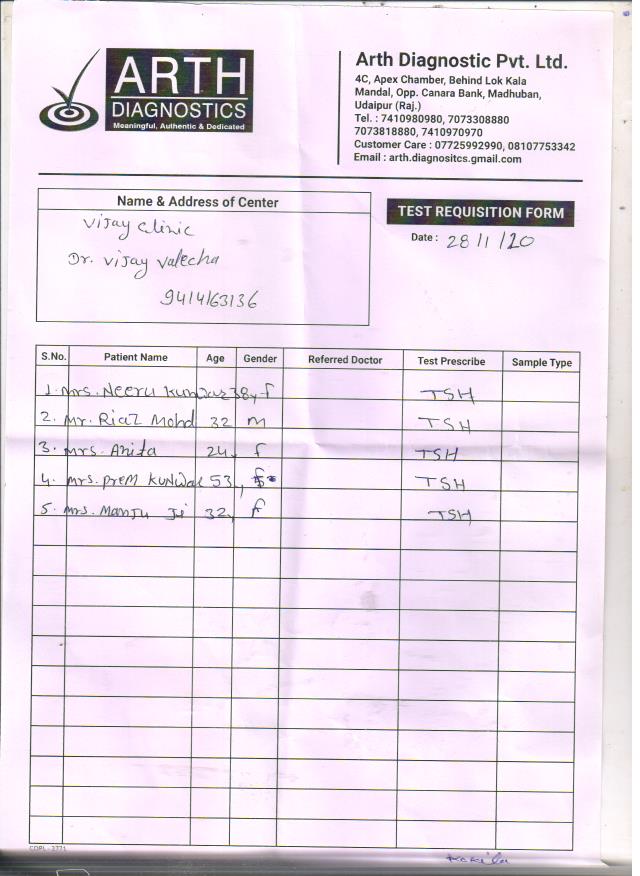 ARTH
DIAGNOSTICS
Meaningful, Authentic & Dedicated
Arth Diagnostic Pvt. Ltd.
4C, Apex Chamber, Behind Lok Kala
Mandal, Opp. Canara Bank, Madhuban,
Udaipur (Raj.)
Tel. : 7410980980, 7073308880
7073818880, 7410970970
Customer Care : 07725992990, 08107753342
Email : arth.diagnositcs.gmail.com
Name & Address of Center
Vijay Clinic
Dr. Vijay Valecha
9414163136
TEST REQUISITION FORM
Date : 28/11/20
S.No. Patient Name Age Gender Referred Doctor Test Prescribe Sample Type
1. Mrs. Neeru Kunwar 38y F TSH
2. Mr. Riaz Mohd 32 M TSH
3. Mrs. Anita 24y F TSH
4. Mrs. Prem Kunwar 53y F TSH
5. Mrs. Manju Ji 32y F TSH
CDPL - 3771